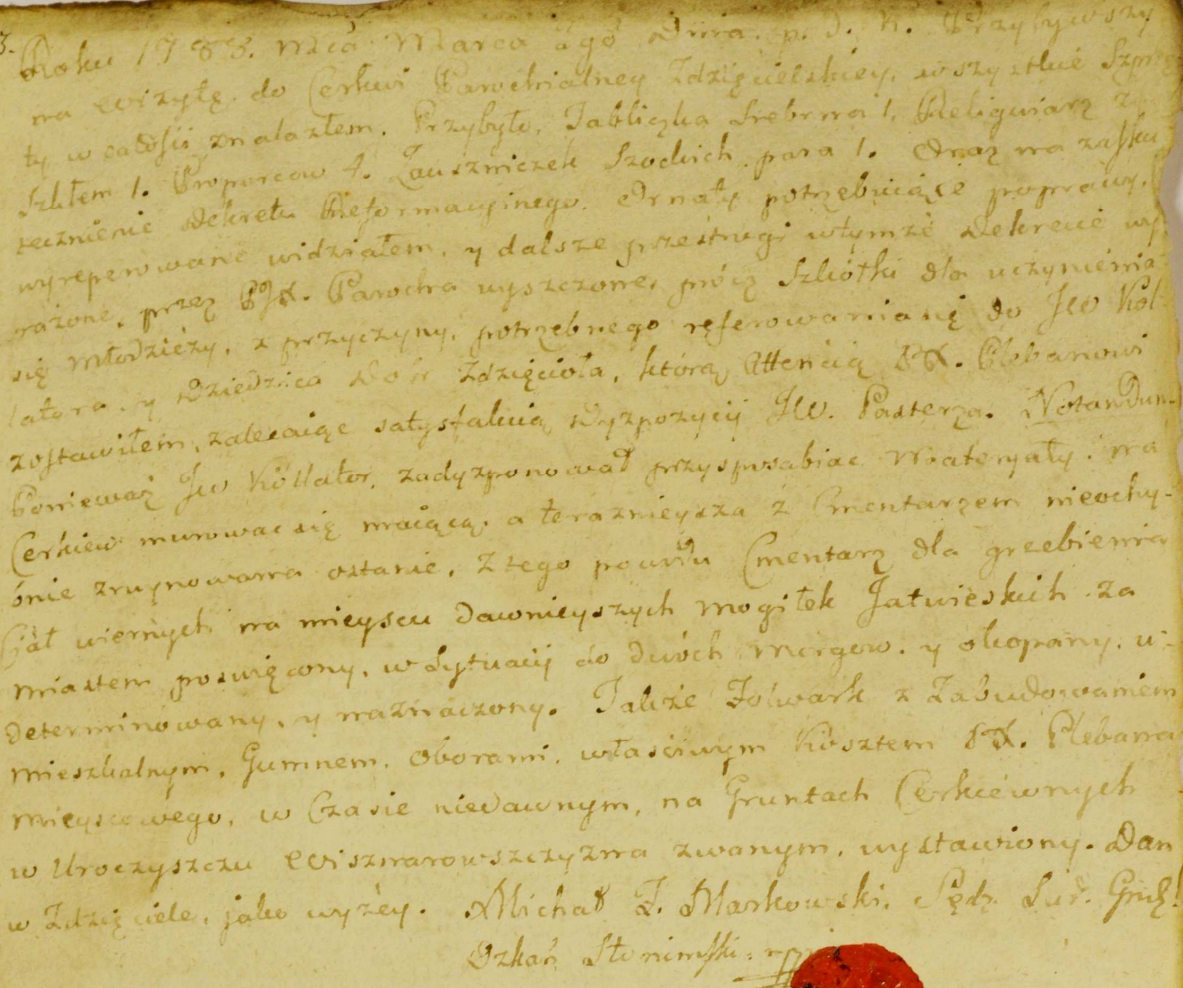 Roku 1783. Mca Marca 2go Dnia. p. S. K. Przybywszy
na wizytę do Cerkwi Parochialney Zdzięcielskiey, wszystkie Szprzę
ty w całości znalazłem. Przybyło, Tabliczka Srebrna 1, Religwiarz z
Szkłem 1. Proporcow 4. Zauszniczek Szockich para 1. Oraz na zasku
tecznienie Dekretu Reformacyinego. Ornaty potrzebuiące poprawy,
wyreperowane widziałem, y dalsze przestrogi w tymże Dekrecie wy
rażone, przez Parocha uyszczone, prócz Szkółki dla uczynienia
się Młodzieży, z przyczyny, potrzebnego referowania się do JW Kol
latora y Dziedzica Dobr Zdzięcioła, którą attencią JX. Plebanowi
zostawiłem, zalecaiąc satysfakcią Dyzpozycij JW. Pasterza. Notandum
Ponieważ JW Kollator, zadyzponował przysposabiac Materyały, na
Cerkiew murowac się maiącą, a teraznieysza z Cmentarzem nieochy-
bnie zruynowana ostanie, Z tego powodu Cmentarz dla grzebienia
Ciał wiernych na mieyscu dawnieyszych mogiłek Jatwieskich za
miastem poswięcony, w Sytuacij do dwóch morgow, y okopany, u-
determinowany, y naznaczony. Takze Folwark z Zabudowaniem
mieszkalnym, Gumnem, Oborami, właściwym Kosztem JX. Plebana
mieyscowego, w Czasie niedawnym, na Gruntach Cerkiewnych
w Uroczyszczu Wiszmarowszczyzna zwanym, wystawiony. Dan
w Zdzięciele, jako wyżey. Michał Markowski, Sędz. Sur.
Dzkań Słonimski